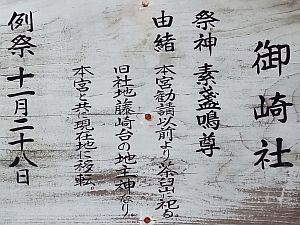 御崎社
祭神 素盞鳴尊
由緒 本宮勧請以前より茶臼山に祀る。
旧社地藤崎台の地主神なり。
本宮と共に現在地に移転。
例祭 十一月二十八日